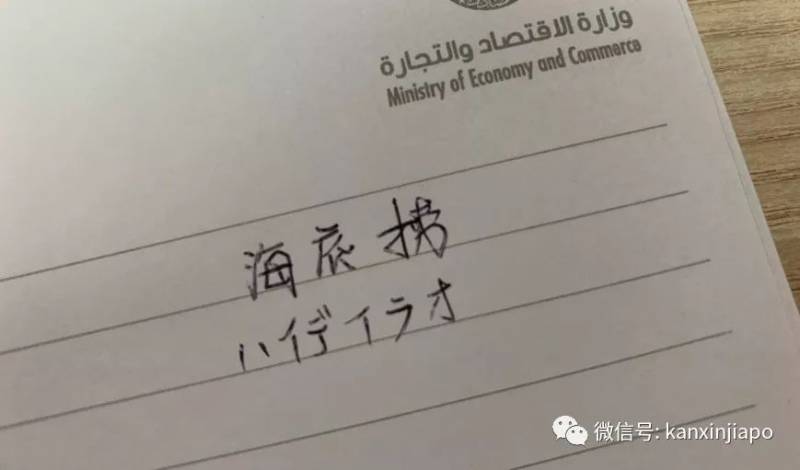 وزارة الاقتصاد والتجارة
Ministry of Economy and Commerce
海底捞
ハイディラオ
微信号: kanxinjiapo